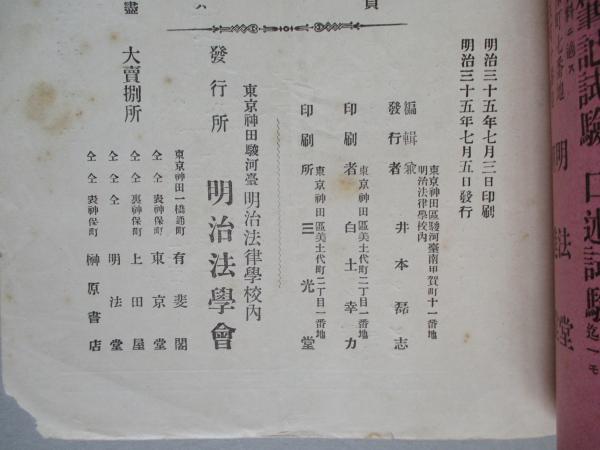 筆記試驗 口述試驗
明治三十五年七月三日印刷
明治三十五年七月五日發行
東京神田區駿河臺南甲賀町十一番地
明治法律學校內
編輯兼
發行者 井本磊志
東京神田區美土代町二丁目一番地
印刷者 白土幸力
東京神田區美土代町二丁目一番地
印刷所 三光堂
東京神田駿河臺明治法律學校內
發行所 明治法學會
大賣捌所
東京神田一橋通町 有斐閣
仝仝表神保町 東京堂
仝仝裏神保町 上田屋
仝仝仝 明法堂
仝仝表神保町 榊原書店